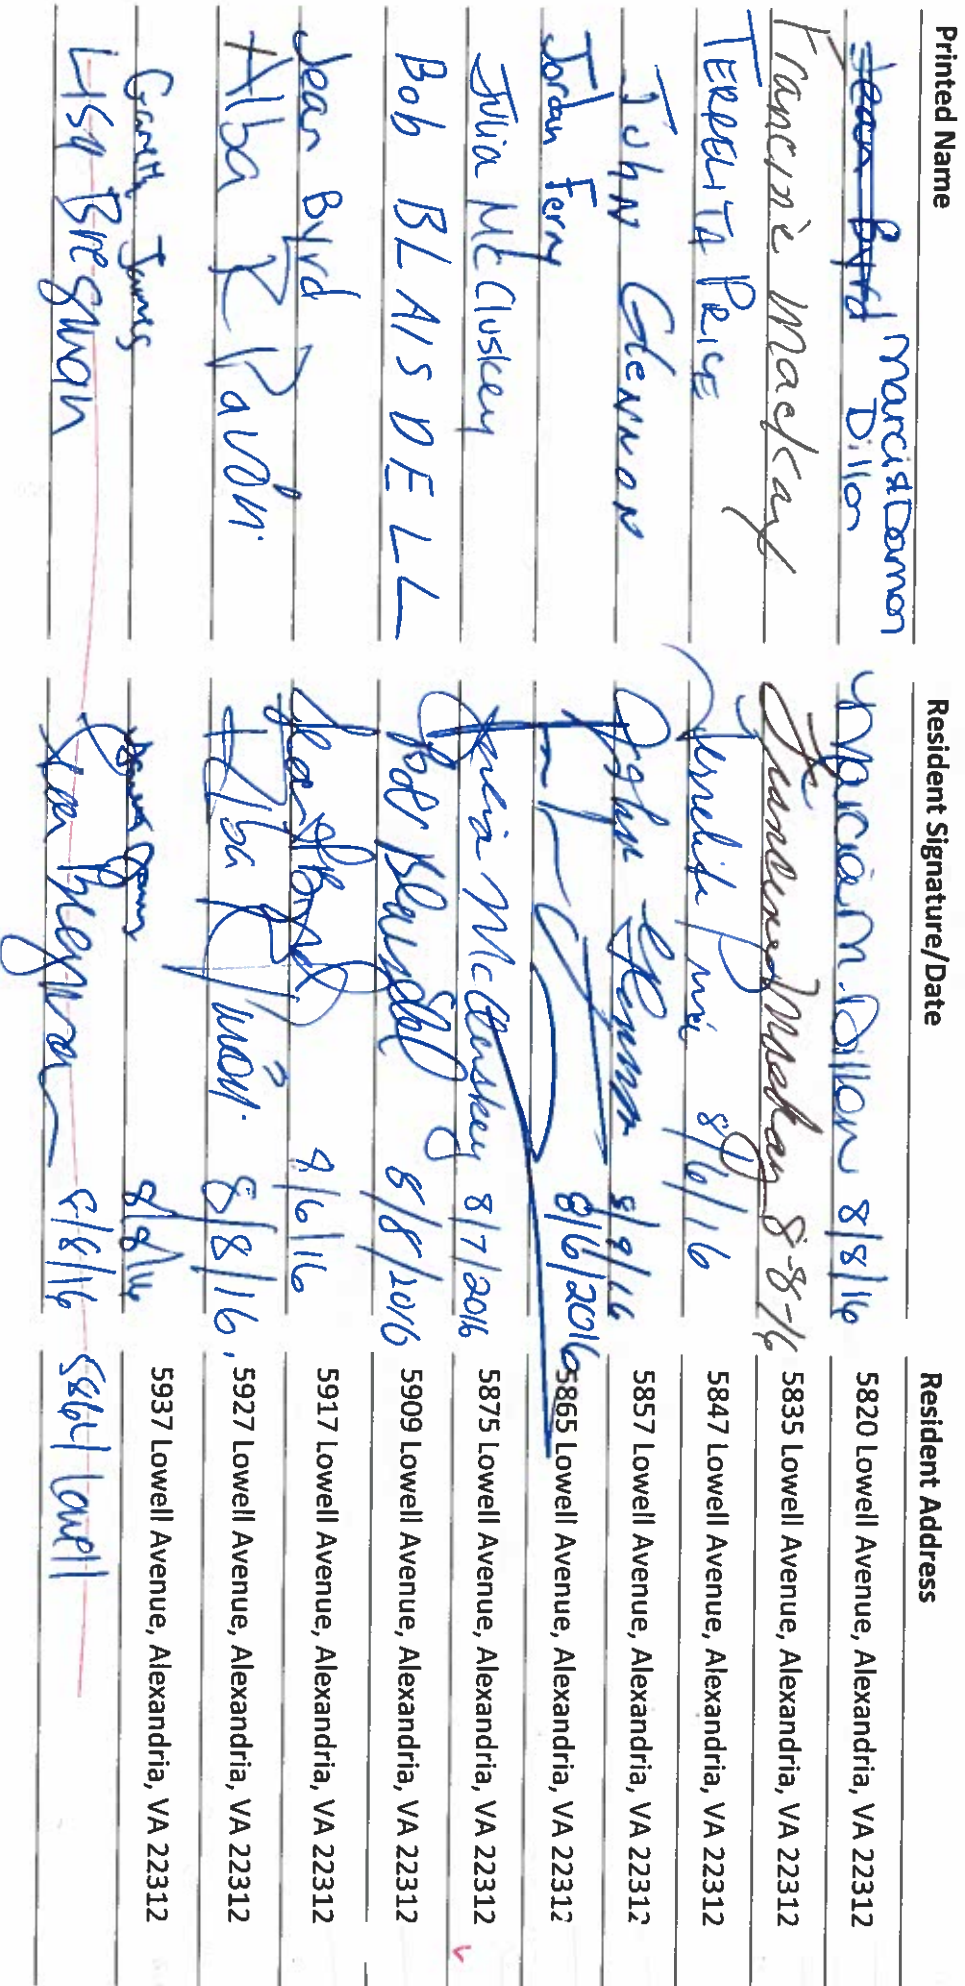 Printed Name Resident Signature/Date Resident Address
Jean Byrd Marcia Damon Dillon Marcia M. Dillon 8/8/16 5820 Lowell Avenue, Alexandria, VA 22312
Francine Mackay Francine Mackay 8-8-16 5835 Lowell Avenue, Alexandria, VA 22312
TERRELITA PRICE Terrelita Price 8/6/16 5847 Lowell Avenue, Alexandria, VA 22312
JOHN GLENNON John Glennon 8/9/16 5857 Lowell Avenue, Alexandria, VA 22312
Jordan Ferry 8/6/2016 5865 Lowell Avenue, Alexandria, VA 22312
Julia McCluskey Julia McCluskey 8/7/2016 5875 Lowell Avenue, Alexandria, VA 22312
Bob BLAISDELL Bob Blaisdell 8/8/2016 5909 Lowell Avenue, Alexandria, VA 22312
Jean Byrd Jean Byrd 8/6/16 5917 Lowell Avenue, Alexandria, VA 22312
Alba R Pavón Alba R Pavón 8/8/16, 5927 Lowell Avenue, Alexandria, VA 22312
Gareth James Gareth James 8/8/16 5937 Lowell Avenue, Alexandria, VA 22312
Lisa Bregman Lisa Bregman 8/8/16 5864 Lowell